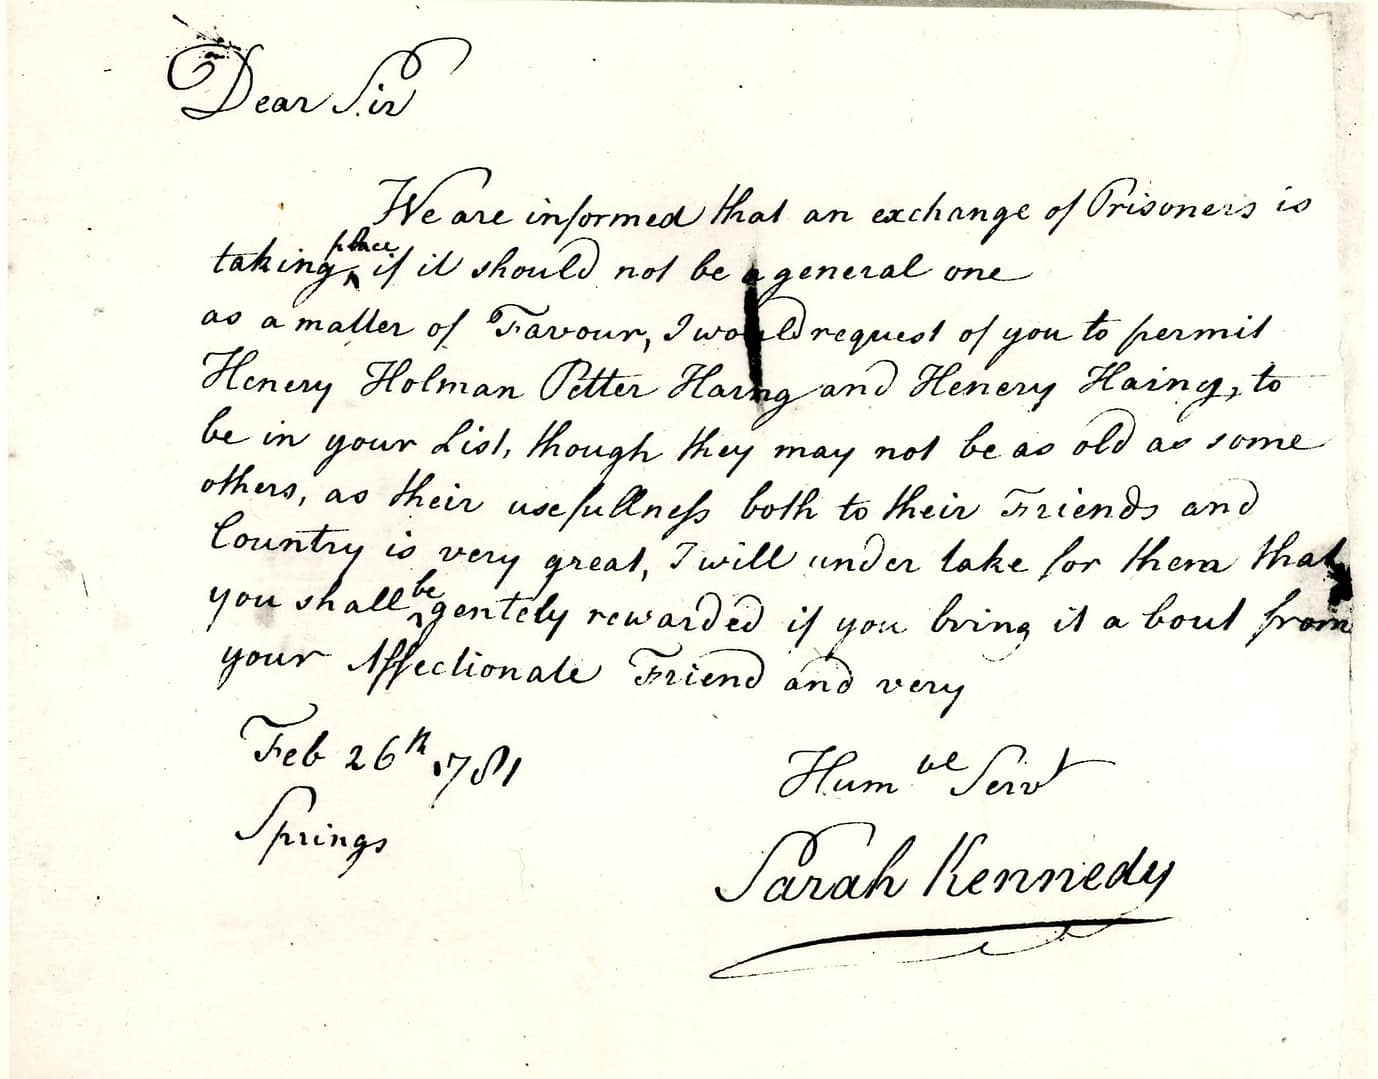 Dear Sir
We are informed that an exchange of Prisoners is
taking place if it should not be a general one
as a matter of Favour, I would request of you to permit
Henery Holman Petter Haring and Henery Haring, to
be in your List, though they may not be as old as some
others, as their usefullness both to their Friends and
Country is very great, I will under take for them that
you shall be gentely rewarded if you bring it a bout from
your Affectionate Friend and very
Humble Servt
Feb 26th 1781
Springs
Sarah Kennedy